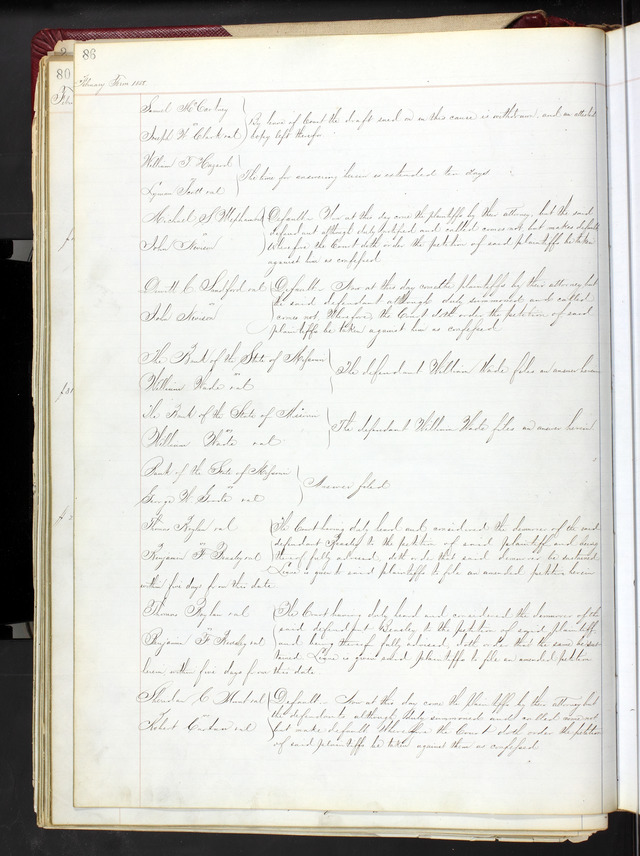 86
80
February Term 1855
Samuel McCartney
vs
Joseph W Clark et al
By leave of Court the draft sued on in this cause is withdrawn and an attested
Copy left therefor
William T Hazard
vs
Lyman Scott et al
The time for answering herein is extended ten days
Michael S
vs
John
Default. Now at this day come the plaintiffs by their attorney, but the said
defendant although duly notified and called comes not but makes default
Wherefore the Court doth order the petition of said plaintiffs be taken
against him as confessed
C Sandford et al
vs
John
Default. Now at this day come the plaintiffs by their attorney but
the said defendant although duly summoned and called
comes not Wherefore the Court doth order the petition of said
plaintiffs be taken against him as confessed
The Bank of the State of Missouri
vs
William Wade et al
The defendant William Wade files an answer herein
The Bank of the State of Missouri
vs
William Wade et al
The defendant William Wade files an answer herein
Bank of the State of Missouri
vs
George W et al
Answer filed
Thomas et al
vs
Benjamin F Beasley et al
The Court having duly heard and considered the demurrer of the said
defendant Beasley to the petition of said plaintiff and being
thereof fully advised, doth order that said demurrer be sustained
Leave is given to said plaintiffs to file an amended petition herein
within five days from this date
Thomas et al
vs
Benjamin F Beasley et al
The Court having duly heard and considered the demurrer of the
said defendant Beasley to the petition of said plaintiff
and being thereof fully advised, doth order that the same be sus
tained Leave is given said plaintiffs to file an amended petition
herein within five days from this date
C Hunt et al
vs
Robert et al
Default. Now at this day come the plaintiffs by their attorney but
the defendants although duly summoned and called come not
but make default Wherefore the Court doth order the petition
of said plaintiffs be taken against them as confessed